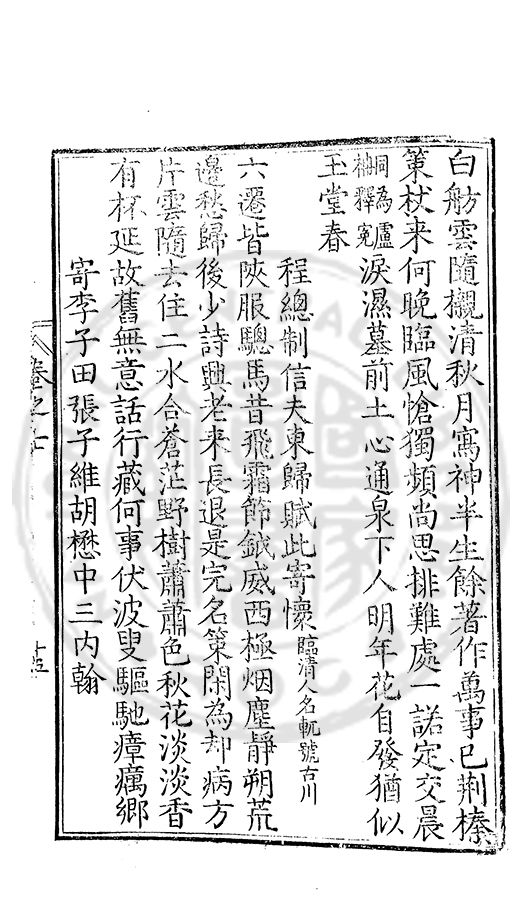 白舫雲隨櫬清秋月寫神半生餘著作萬事已荆榛
策杖来何晚臨風愴獨頻尚思排難處一諾定交晨
同為盧柟釋寃淚濕墓前土心通泉下人明年花自發猶似
玉堂春
程總制信夫東歸賦此寄懷臨清人名軏號古川
六遷皆陝服驄馬昔飛霜節鉞威西極烟塵靜朔荒
邊愁歸後少詩興老来長退是完名策閑為却病方
片雲隨去住二水合蒼茫野樹蕭蕭色秋花淡淡香
有杯延故舊無意話行藏何事伏波叟驅馳瘴癘鄉
寄李子田張子維胡懋中三内翰
卷之七
十五